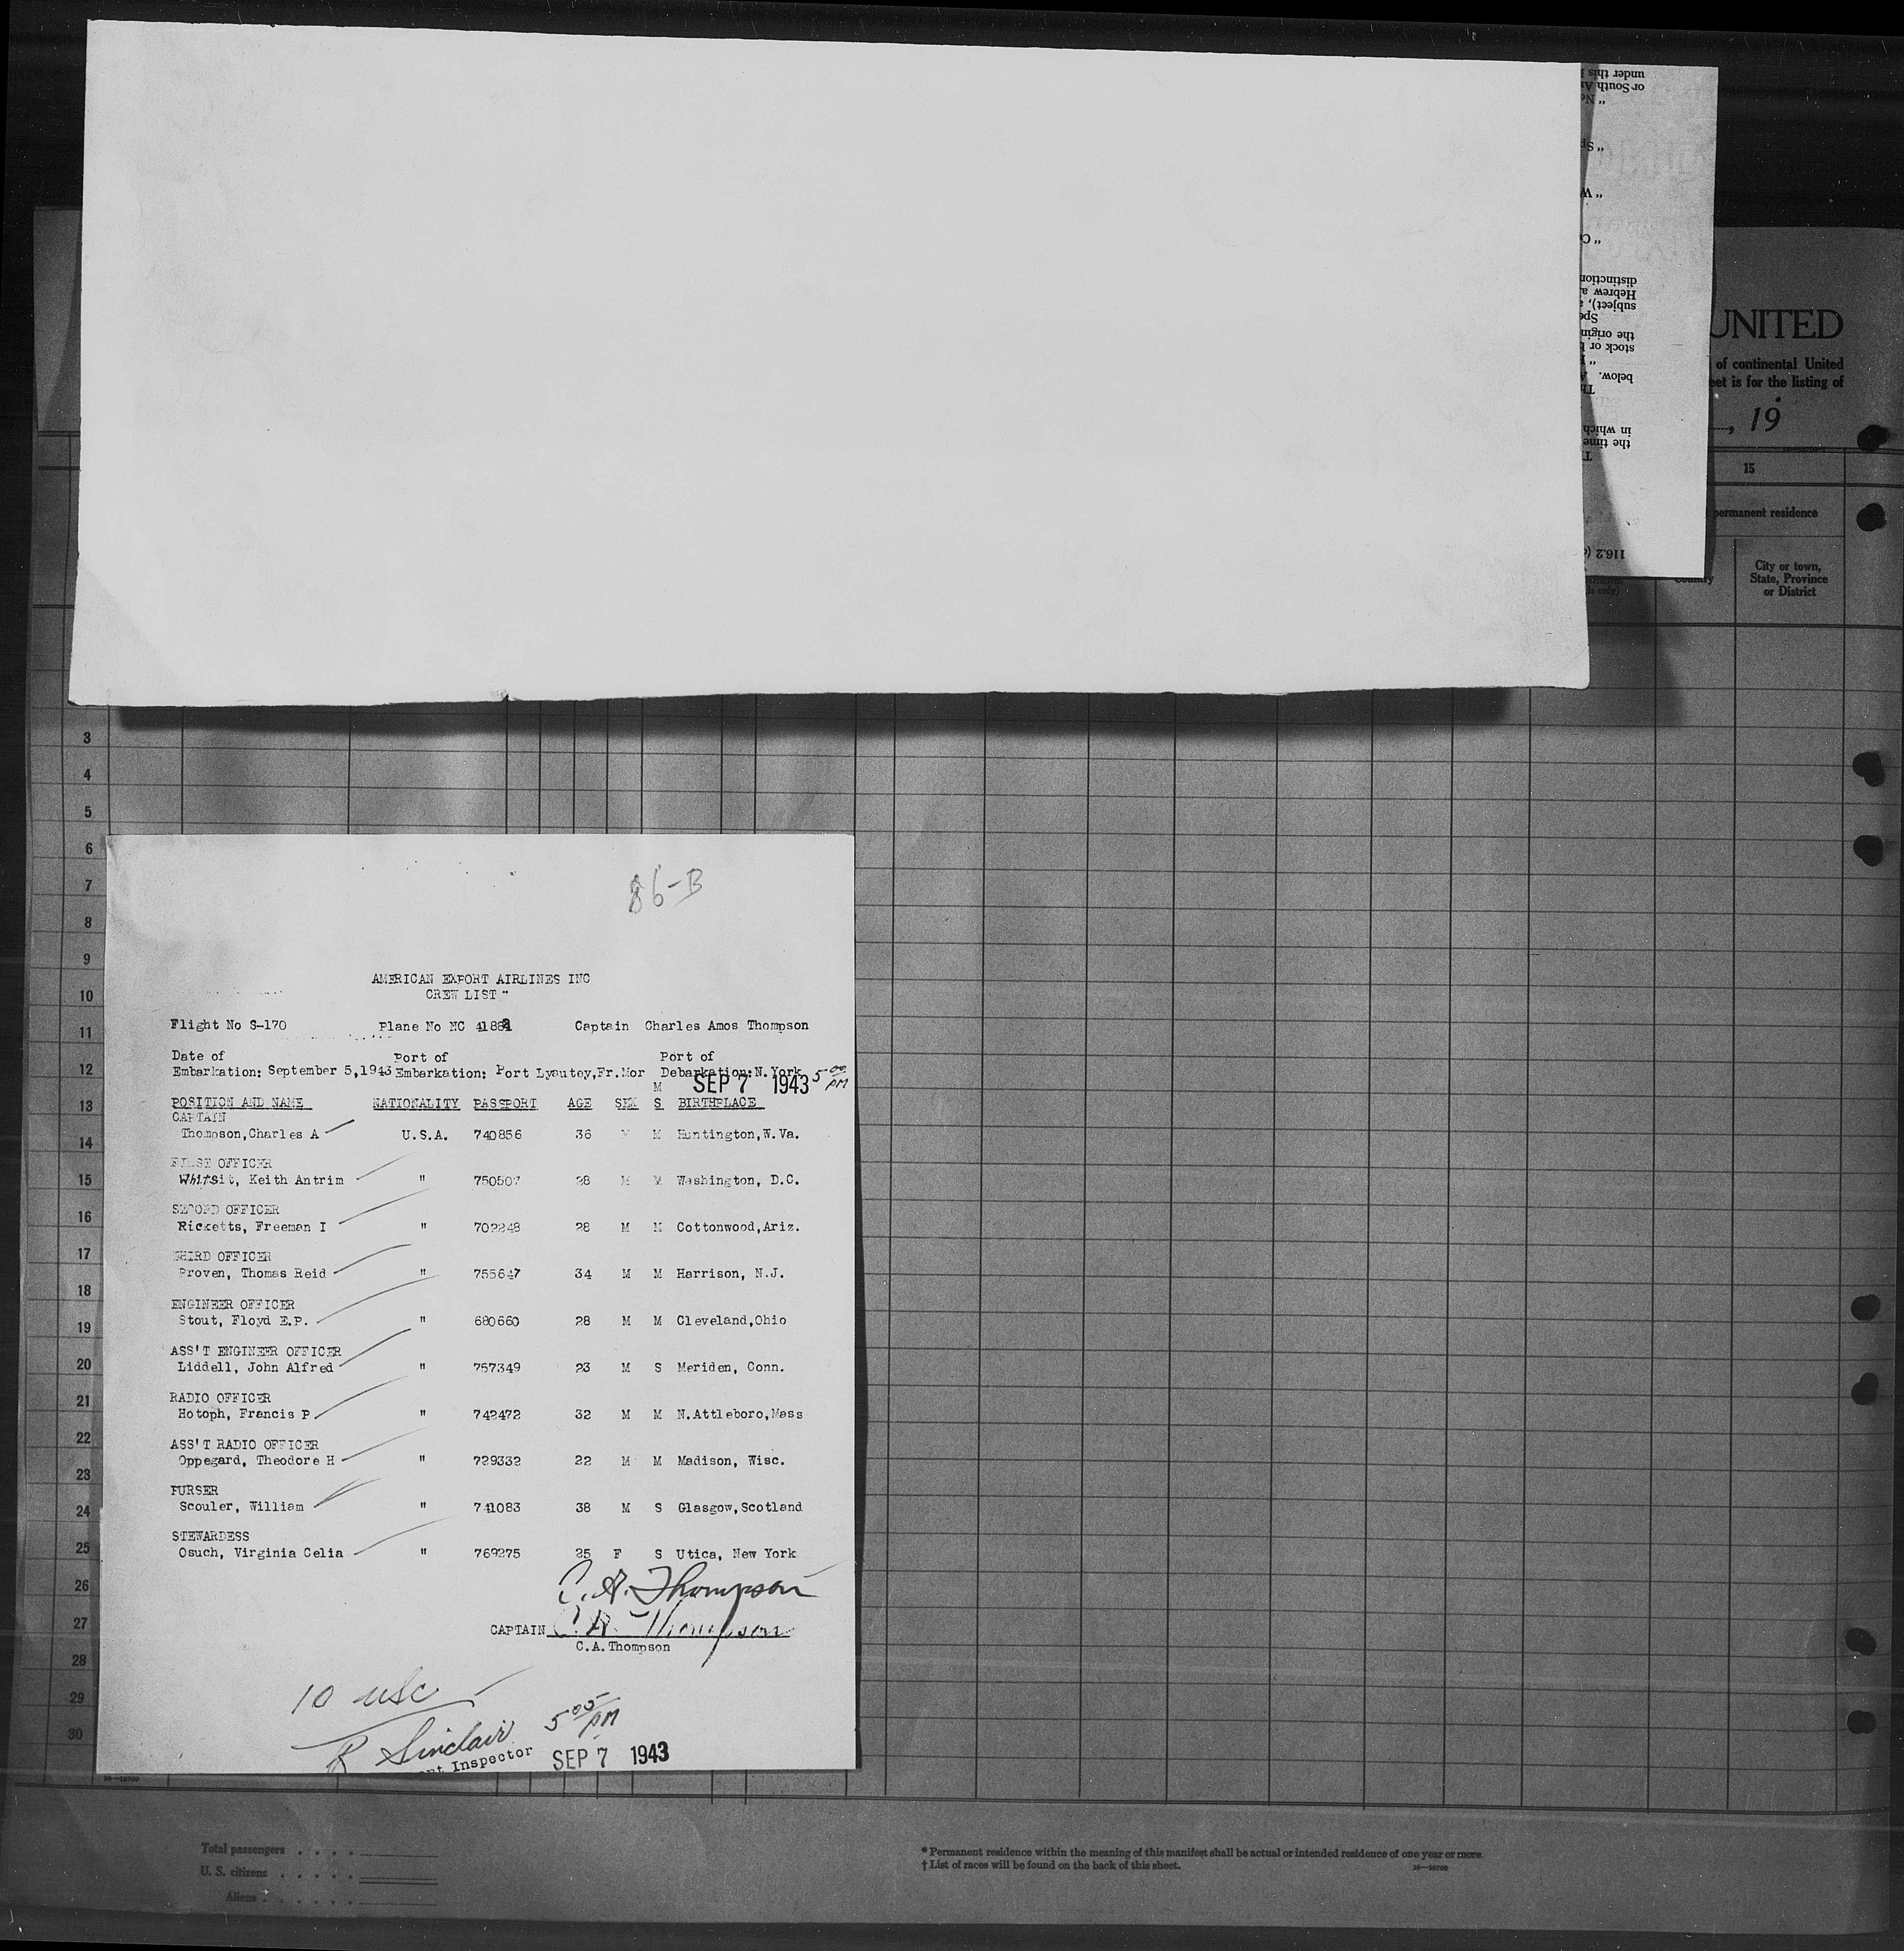 under this
or South
UNITED
of continental United
is for the listing of
, 19
15
permanent residence
Country
City or town,
State, Province
or District
distinction
Hebrew
subject),
the origin
stock or
below.
in which
the time
116.2
3
4
5
6
7
8
9
10
11
12
13
14
15
16
17
18
19
20
21
22
23
24
25
26
27
28
29
30
86-B
AMERICAN EXPORT AIRLINES INC
CREW LIST "
Flight No S-170 Plane No NC Captain Charles Amos Thompson
Date of Port of Port of
Embarkation: September 5,1943 Embarkation: Port Lyautey,Fr.Mor Debarkation:N.York
M SEP 7 1943 5 00 PM
POSITION AND NAME NATIONALITY PASSPORT AGE SEX S BIRTHPLACE
CAPTAIN
Thompson,Charles A U.S.A. 740856 36 M M Huntington,W.Va.
FIRST OFFICER
Whitsit, Keith Antrim " 750507 28 M M Washington, D.C.
SECOND OFFICER
Ricketts, Freeman I " 702248 28 M M Cottonwood,Ariz.
THIRD OFFICER
Proven, Thomas Reid " 755647 34 M M Harrison, N.J.
ENGINEER OFFICER
Stout, Floyd E.P. " 680660 28 M M Cleveland,Ohio
ASS'T ENGINEER OFFICER
Liddell, John Alfred " 757349 23 M S Meriden, Conn.
RADIO OFFICER
Hotoph, Francis P " 742472 32 M M N.Attleboro,Mass
ASS'T RADIO OFFICER
Oppegard, Theodore H " 729332 22 M M Madison, Wisc.
PURSER
Scouler, William " 741083 38 M S Glasgow,Scotland
STEWARDESS
Osuch, Virginia Celia " 769275 25 F S Utica, New York
C. A. Thompson
CAPTAIN C. A. Thompson
C.A.Thompson
10 USC
R Sinclair 5 00 PM
Inspector SEP 7 1943
Total passengers . . . .
U. S. citizens . . . . .
Aliens . . . . . .
* Permanent residence within the meaning of this manifest shall be actual or intended residence of one year or more.
† List of races will be found on the back of this sheet.